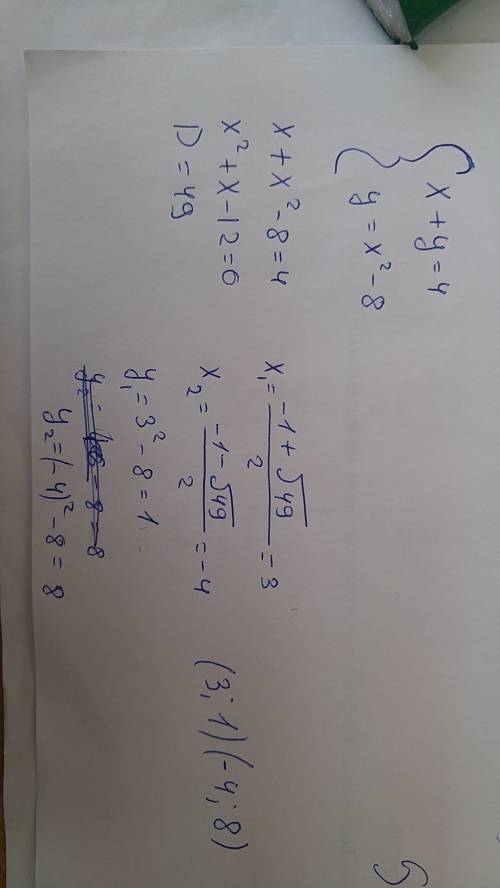 { x + y = 4
y = x² - 8
x + x² - 8 = 4
x² + x - 12 = 0
D = 49
x₁ = (-1 + √49)/2 = 3
x₂ = (-1 - √49)/2 = -4
y₁ = 3² - 8 = 1
y₂ = (-4)² - 8 = 8
(3; 1) (-4; 8)
5